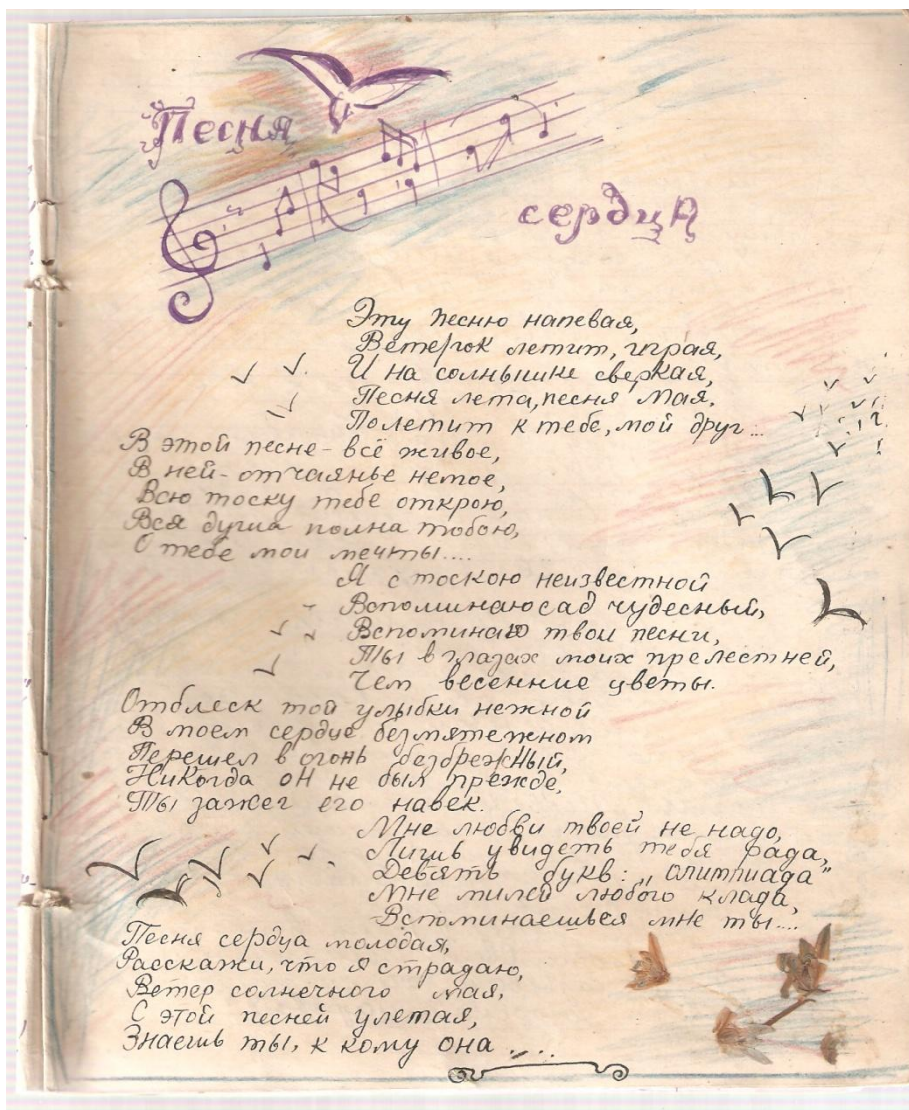 Песня
сердца
Эту песню напевая,
Ветерок летит, играя,
И на солнышке сверкая,
Песня лета, песня мая,
Полетит к тебе, мой друг...
В этой песне - всё живое,
В ней - отчаянье немое,
Всю тоску тебе открою,
Вся душа полна тобою,
О тебе мои мечты....
Я с тоскою неизвестной
Вспоминаю сад чудесный,
Вспоминаю твои песни,
Ты в глазах моих прелестней,
Чем весенние цветы.
Отблеск той улыбки нежной
В моем сердце безмятежном
Перешел в огонь безбрежный,
Никогда он не был прежде,
Ты зажег его навек.
Мне любви твоей не надо,
Лишь увидеть тебя рада,
Девять букв: „олимпиада"
Мне милей любого клада,
Вспоминаешься мне ты....
Песня сердца молодая,
Расскажи, что я страдаю,
Ветер солнечного мая,
С этой песней улетая,
Знаешь ты, к кому она ....